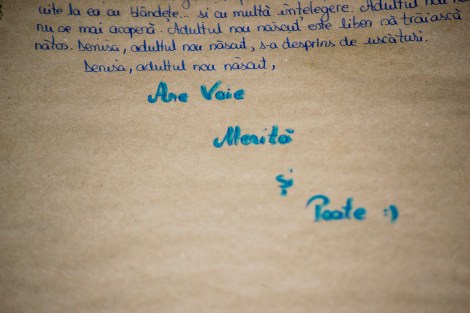 uite la ea cu blândețe... și cu multă înțelegere. Adultul nou
nu se mai acoperă. Adultul nou născut este liber că trăiască
nătos. Denisa, adultul nou născut, s-a desprins de uscături.
Denisa, adultul nou născut,
Are Voie
Merită
și
Poate :)